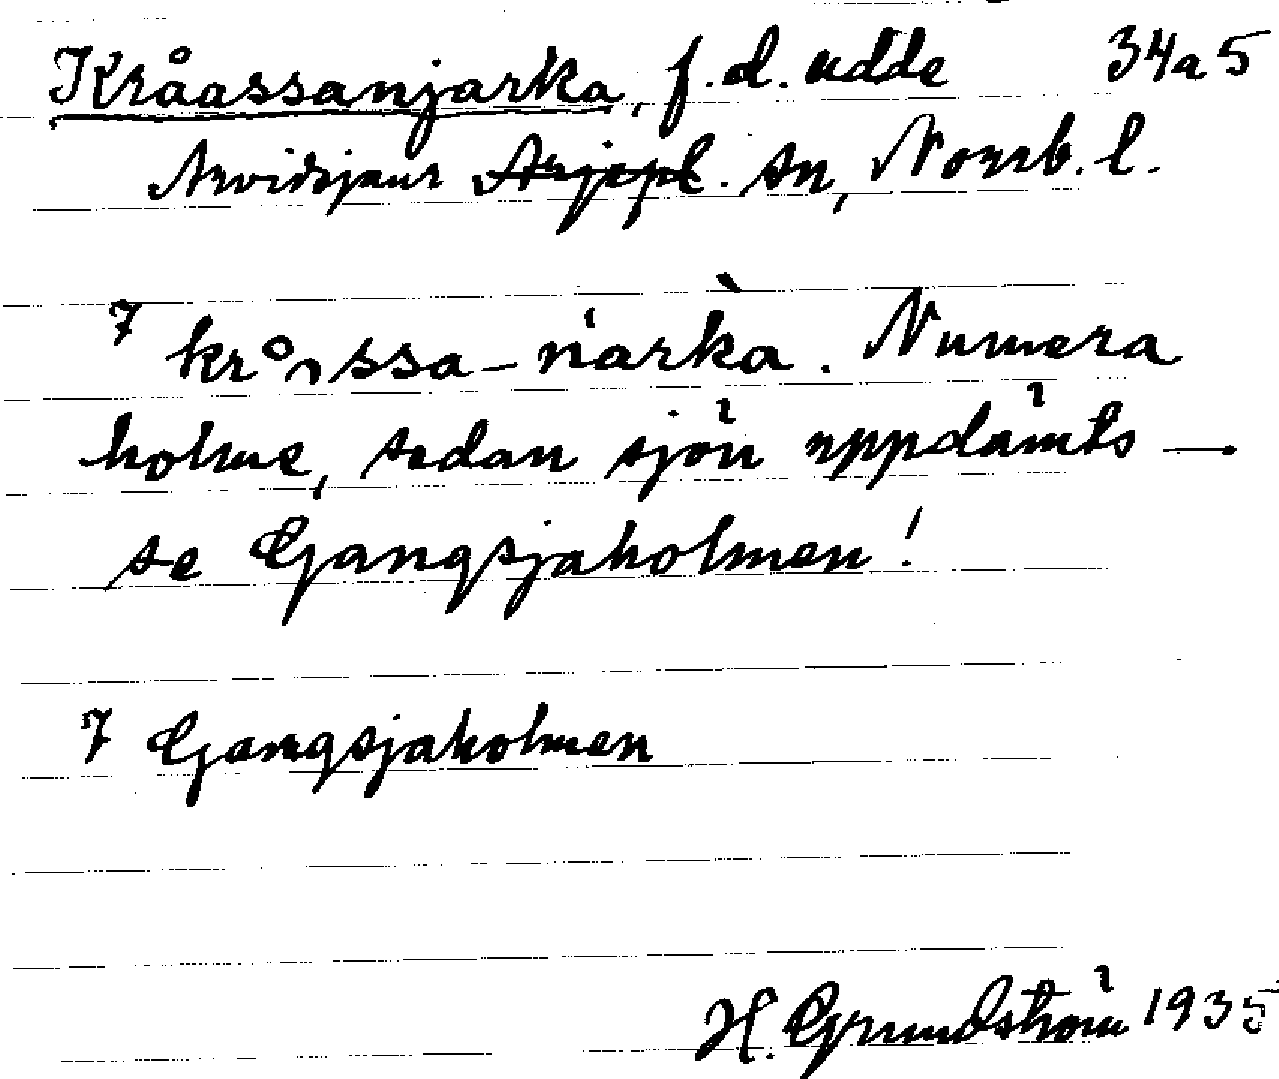 Kråassanjarka, f.d. udde 34a5
Arvidsjaur Arjepl. sn, Norrb. l.
7 kråssa-njarka. Numera
holme, sedan sjön uppdämts —
se Gangsjaholmen!
7 Gangsjaholmen
H. Grundström 1935